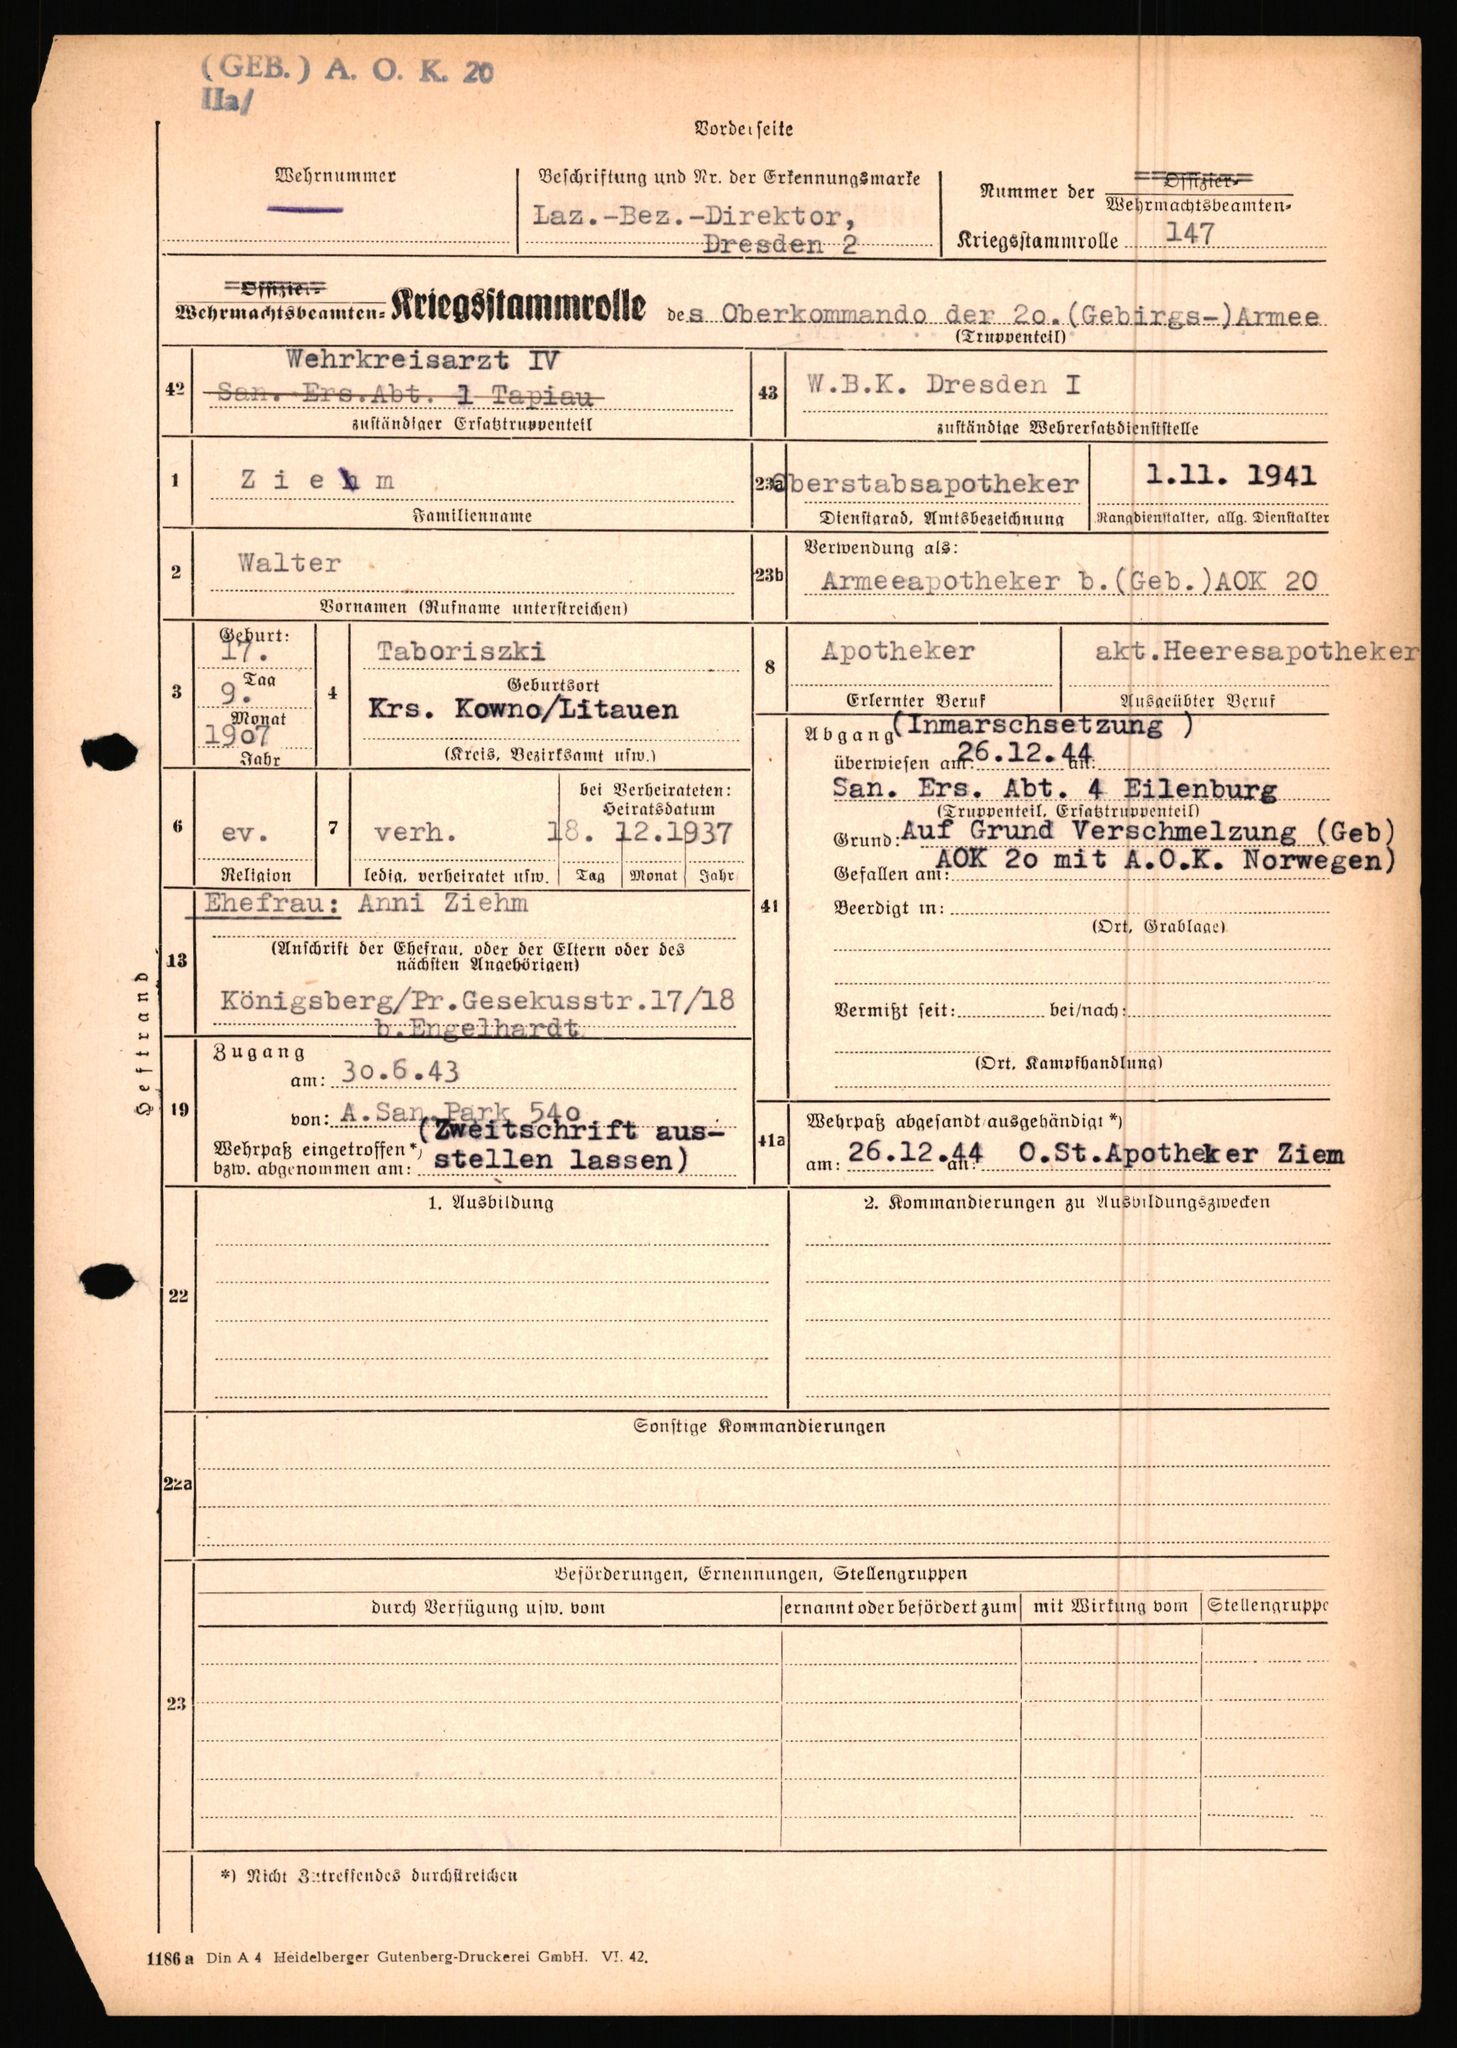 (GEB.) A. O. K. 20
IIa/
Vorderseite
Wehrnummer
Beschriftung und Nr. der Erkennungsmarke
Laz.-Bez.-Direktor,
Dresden 2
Nummer der Offizier- Wehrmachtsbeamten-
Kriegsstammrolle 147
Offizier-
Wehrmachtsbeamten- Kriegsstammrolle des Oberkommando der 2o.(Gebirgs-)Armee
(Truppenteil)
42 Wehrkreisarzt IV
San. Ers.Abt. 1 Tapiau
zuständiger Ersatztruppenteil
43 W.B.K. Dresden I
zuständige Wehrersatzdienststelle
1 Z i e h m
Familienname
23a Oberstabsapotheker
Dienstgrad, Amtsbezeichnung
1.11. 1941
Rangdienstalter, allg. Dienstalter
2 Walter
Vornamen (Rufname unterstreichen)
23b Verwendung als:
Armeeapotheker b.(Geb.)AOK 20
3 Geburt:
17.
Tag
9.
Monat
19o7
Jahr
4 Taboriszki
Geburtsort
Krs. Kowno/Litauen
(Kreis, Bezirksamt usw.)
8 Apotheker
Erlernter Beruf
akt.Heeresapotheker
Ausgeübter Beruf
6 ev.
Religion
7 verh.
ledig, verheiratet usw.
bei Verheirateten:
Heiratsdatum
18. 12.1937
Tag Monat Jahr
41 Abgang (Inmarschsetzung )
überwiesen am: 26.12.44 an:
San. Ers. Abt. 4 Eilenburg
(Truppenteil, Ersatztruppenteil)
Grund: Auf Grund Verschmelzung (Geb)
AOK 2o mit A.O.K. Norwegen)
Gefallen am:
Beerdigt in:
(Ort, Grablage)
Vermißt seit: bei/nach:
(Ort, Kampfhandlung)
13 Ehefrau: Anni Ziehm
(Anschrift der Ehefrau, oder der Eltern oder des
nächsten Angehörigen)
Königsberg/Pr.Gesekusstr.17/18
b.Engelhardt
Heftrand
19 Zugang
am: 3o.6.43
von: A.San.Park 54o
Wehrpaß eingetroffen*) (Zweitschrift aus-
bzw. abgenommen am: stellen lassen)
41a Wehrpaß abgesandt/ausgehändigt*)
am: 26.12.44 an: O.St.Apotheker Ziem
22 1. Ausbildung
2. Kommandierungen zu Ausbildungszwecken
22a Sonstige Kommandierungen
23 Beförderungen, Ernennungen, Stellengruppen
durch Verfügung usw. vom
ernannt oder befördert zum
mit Wirkung vom
Stellengruppe
*) Nicht Zutreffendes durchstreichen
1186 a Din A 4 Heidelberger Gutenberg-Druckerei GmbH. VI. 42.